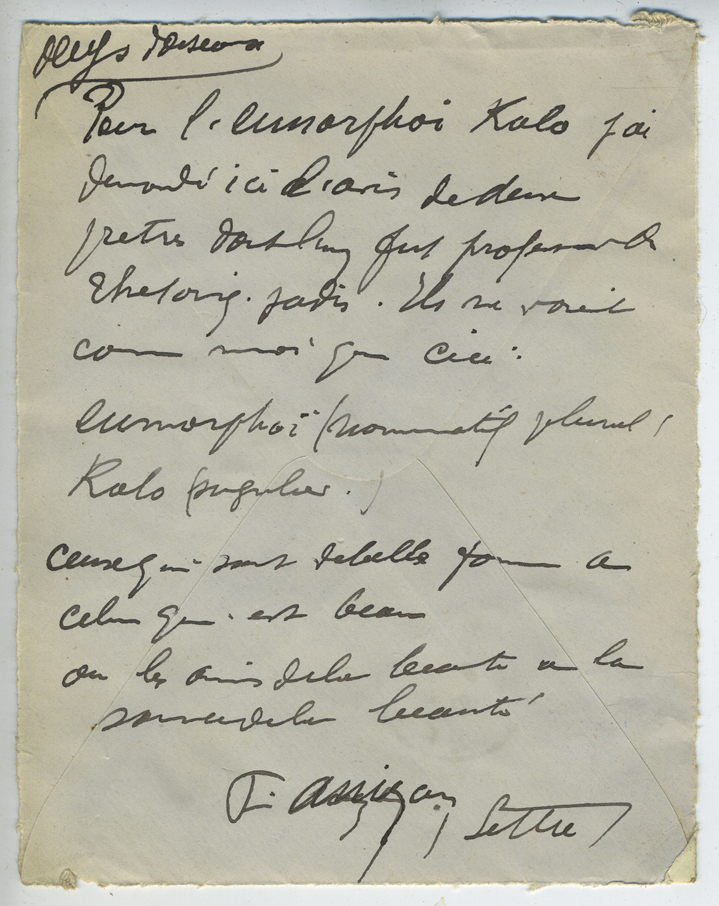 Pour l'eumorphoi Kalo j'ai
demandé ici l'avis de deux
pretres dont l'un fut professeur de
Rhetoriq. jadis. Ils ne voient
comme moi que ceci :
eumorphoï (nominatif pluriel)
Kalo (singulier.)
ceux qui sont de belle forme a
celui qui est beau
ou les amis de la beauté a la
source de la beauté
(Lettre)